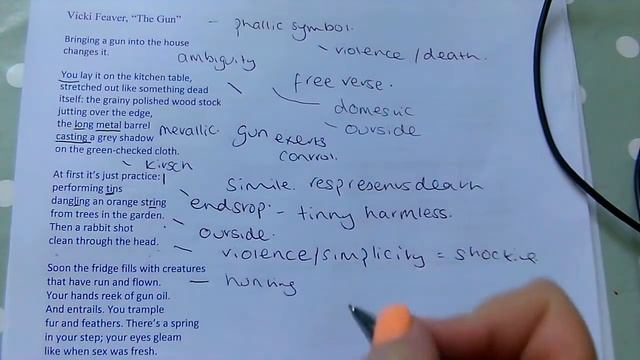 Vicki Feaver, "The Gun" – phallic symbol.
Bringing a gun into the house
changes it.
violence / death.
ambiguity
You lay it on the kitchen table,
stretched out like something dead
itself: the grainy polished wood stock
jutting over the edge,
the long metal barrel
casting a grey shadow
on the green-checked cloth.
free verse.
domestic
outside
metallic.
gun exerts
control.
Kirsch
At first it's just practice:
performing tins
dangling an orange string
from trees in the garden.
Then a rabbit shot
clean through the head.
simile. respresents death
endstop. – tinny harmless.
outside.
violence/simplicity = shocking
Soon the fridge fills with creatures
that have run and flown. – hunting
Your hands reek of gun oil.
And entrails. You trample
fur and feathers. There's a spring
in your step; your eyes gleam
like when sex was fresh.